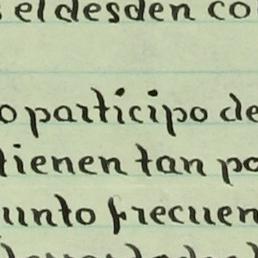 el desden co
o participo de
tienen tan po
unto frecuen